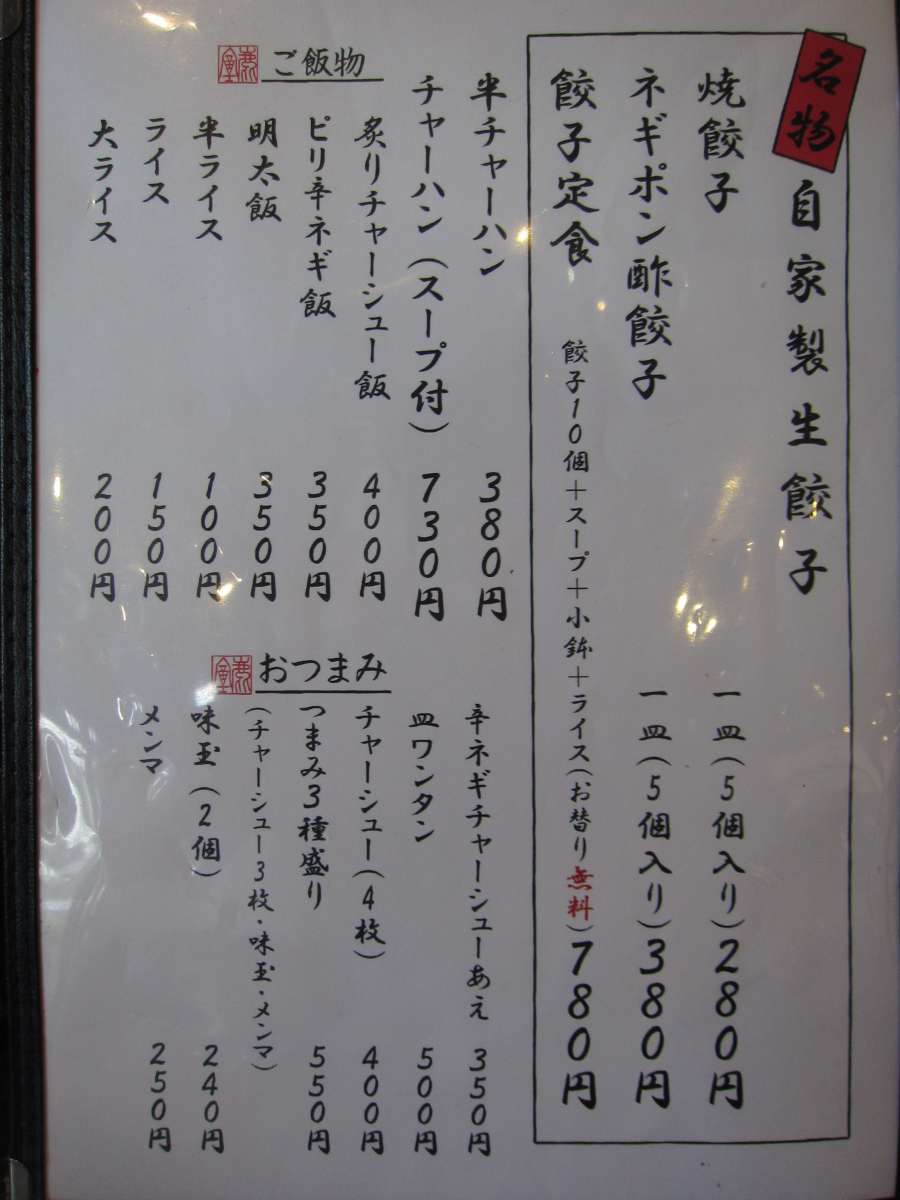 名物 自家製生餃子
焼餃子 一皿(5個入り)280円
ネギポン酢餃子 一皿(5個入り)380円
餃子定食 餃子10個+スープ+小鉢+ライス(お替り無料)780円
ご飯物
半チャーハン 380円
チャーハン(スープ付) 730円
炙りチャーシュー飯 400円
ピリ辛ネギ飯 350円
明太飯 350円
半ライス 100円
ライス 150円
大ライス 200円
おつまみ
辛ネギチャーシューあえ 350円
皿ワンタン 500円
チャーシュー(4枚) 400円
つまみ3種盛り 550円
(チャーシュー3枚・味玉・メンマ)
味玉(2個) 240円
メンマ 250円